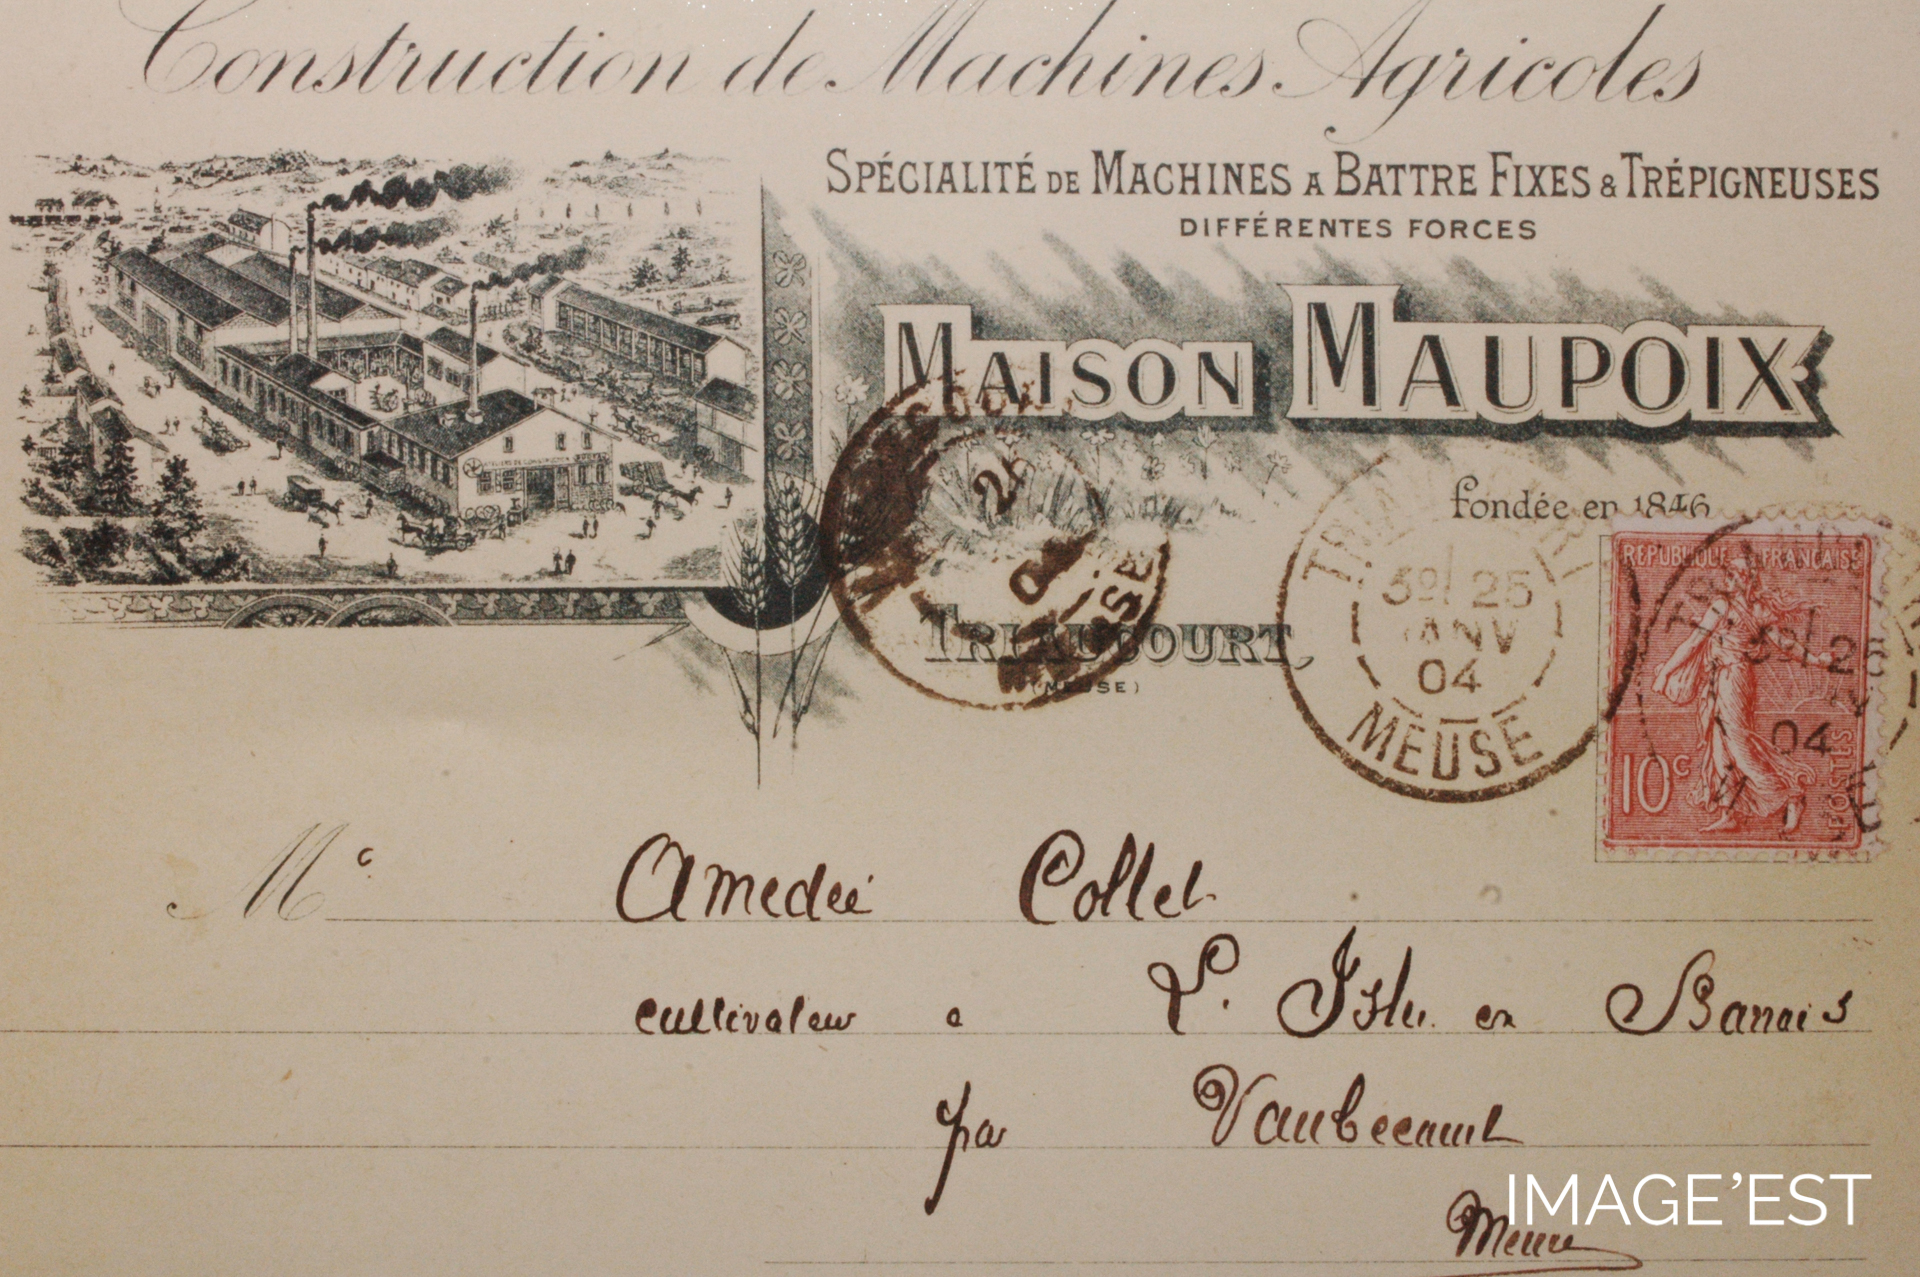 Construction de Machines Agricoles
SPÉCIALITÉ DE MACHINES A BATTRE FIXES & TRÉPIGNEUSES
DIFFÉRENTES FORCES
MAISON MAUPOIX
fondée en 1846
TRIAUCOURT,
(MEUSE)
24
04
MEUSE
5º/ 25
JANV
04
MEUSE
REPUBLIQUE FRANÇAISE
5º/ 25
04
10c
POSTES
Mr Amedée Collet
cultivateur a L. Isle. en Barrois
par Vaubecourt
Meuse
IMAGE'EST